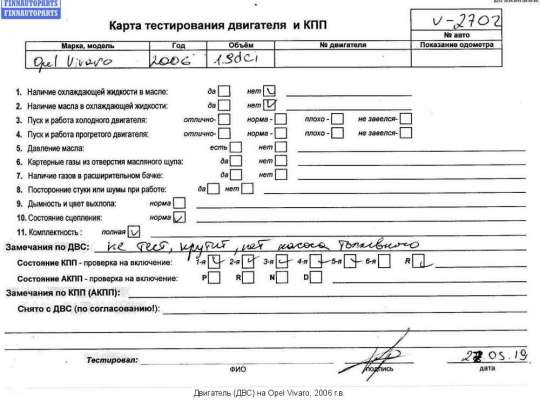 FINNAUTOPARTS
FINNAUTOPARTS
Карта тестирования двигателя и КПП
V-2702
№ авто
Марка, модель Год Объём № двигателя Показание одометра
Opel Vivaro 2006 1.9dci
1. Наличие охлаждающей жидкости в масле: да нет
2. Наличие масла в охлаждающей жидкости: да нет
3. Пуск и работа холодного двигателя: отлично- норма - плохо - не завелся-
4. Пуск и работа прогретого двигателя: отлично- норма - плохо - не завелся-
5. Давление масла: есть нет
6. Картерные газы из отверстия масляного щупа: да нет
7. Наличие газов в расширительном бачке: да нет
8. Посторонние стуки или шумы при работе: да нет
9. Дымность и цвет выхлопа: норма
10. Состояние сцепления: норма
11. Комплектность : полная
Замечания по ДВС: не тест, крутит, нет насоса топливного
Состояние КПП - проверка на включение: 1-я 2-я 3-я 4-я 5-я 6-я R
Состояние АКПП - проверка на включение: P R N D
Замечания по КПП (АКПП):
Снято с ДВС (по согласованию!):
Тестировал: 27.05.19
ФИО подпись дата
Двигатель (ДВС) на Opel Vivaro, 2006 г.в.